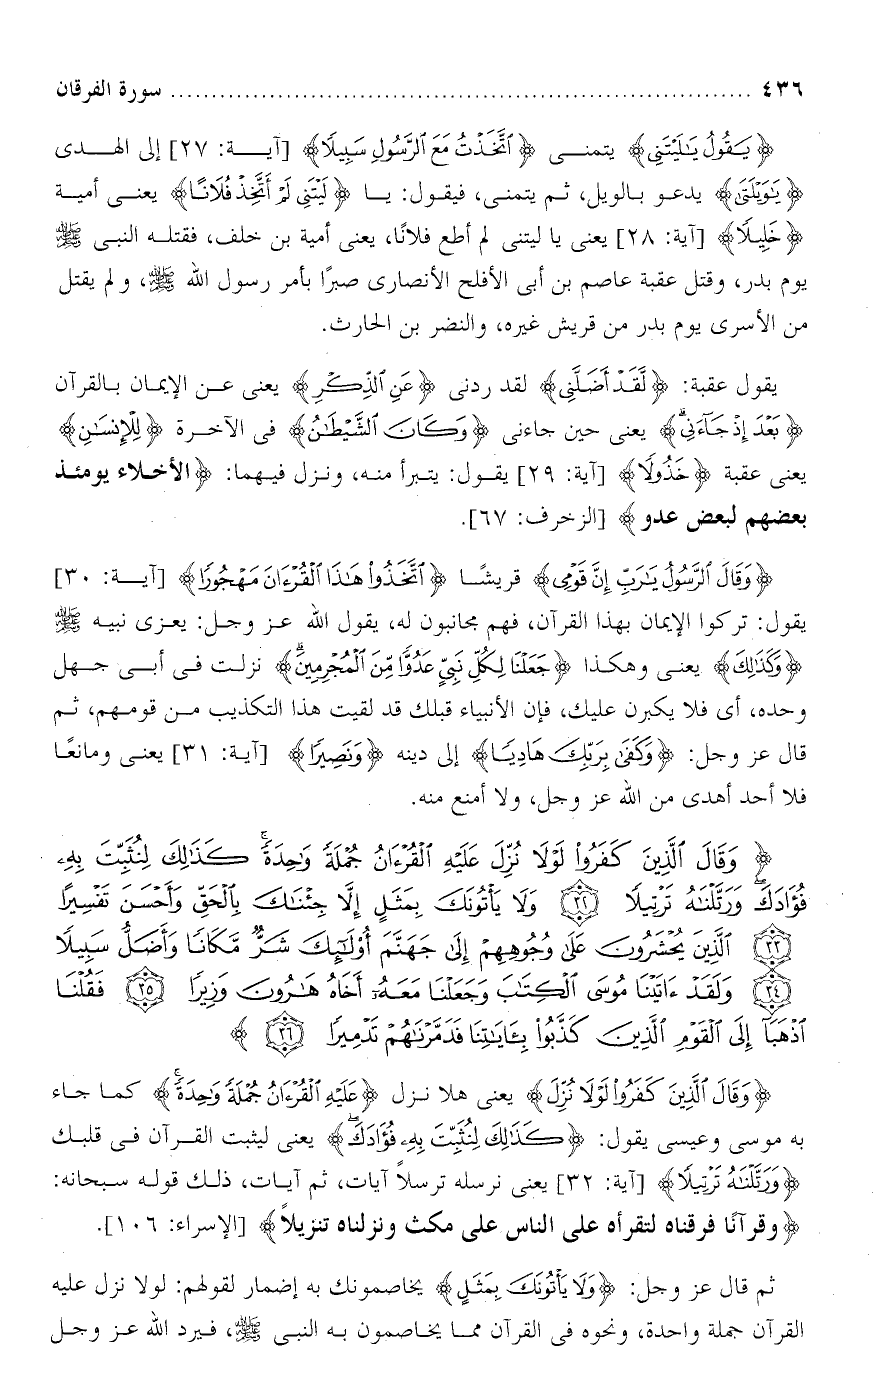 ٤٣٦ ........................................................................ سورة الفرقان
﴿يَقُولُ يَٰلَيْتَنِى﴾ يتمنــى ﴿ٱتَّخَذْتُ مَعَ ٱلرَّسُولِ سَبِيلًا﴾ [آيــة: ٢٧] إلى الهــدى
﴿يَٰوَيْلَتَىٰ﴾ يدعـو بـالويل، ثـم يتمنـى، فيقـول: يـا ﴿لَيْتَنِى لَمْ أَتَّخِذْ فُلَانًا﴾ يعنـى أميـة
﴿خَلِيلًا﴾ [آية: ٢٨] يعنى يا ليتنى لم أطع فلانًا، يعنى أمية بن خلف، فقتلـه النبـى ﷺ
يوم بدر، وقتل عقبة عاصم بن أبى الأفلح الأنصارى صبرًا بأمر رسول الله ﷺ، و لم يقتل
من الأسرى يوم بدر من قريش غيره، والنضر بن الحارث.
يقول عقبة: ﴿لَّقَدْ أَضَلَّنِى﴾ لقد ردنى ﴿عَنِ ٱلذِّكْرِ﴾ يعنى عـن الإيمـان بـالقرآن
﴿بَعْدَ إِذْ جَآءَنِىۗ﴾ يعنى حين جاءنى ﴿وَكَانَ ٱلشَّيْطَٰنُ﴾ فى الآخـرة ﴿لِلْإِنسَٰنِ﴾
يعنى عقبة ﴿خَذُولًا﴾ [آية: ٢٩] يقـول: يتـبرأ منـه، ونـزل فيـهما: ﴿الأخـلاء يومئـذ
بعضهم لبعض عدو﴾ [الزخرف: ٦٧].
﴿وَقَالَ ٱلرَّسُولُ يَٰرَبِّ إِنَّ قَوْمِى﴾ قريشًـا ﴿ٱتَّخَذُوا۟ هَٰذَا ٱلْقُرْءَانَ مَهْجُورًا﴾ [آيــة: ٣٠]
يقول: تركوا الإيمان بهذا القرآن، فهم مجانبون له، يقول الله عـز وجـل: يعـزى نبيـه ﷺ
﴿وَكَذَٰلِكَ﴾ يعنـى وهكـذا ﴿جَعَلْنَا لِكُلِّ نَبِىٍّ عَدُوًّا مِّنَ ٱلْمُجْرِمِينَۗ﴾ نزلـت فـى أبـى جـهل
وحده، أى فلا يكبرن عليك، فإن الأنبياء قبلك قد لقيت هذا التكذيب مـن قومـهم، ثـم
قال عز وجل: ﴿وَكَفَىٰ بِرَبِّكَ هَادِيًا﴾ إلى دينه ﴿وَنَصِيرًا﴾ [آية: ٣١] يعنـى ومانعًـا
فلا أحد أهدى من الله عز وجل، ولا أمنع منه.
﴿وَقَالَ ٱلَّذِينَ كَفَرُوا۟ لَوْلَا نُزِّلَ عَلَيْهِ ٱلْقُرْءَانُ جُمْلَةً وَٰحِدَةًۚ كَذَٰلِكَ لِنُثَبِّتَ بِهِۦ
فُؤَادَكَۖ وَرَتَّلْنَٰهُ تَرْتِيلًا ٣٢ وَلَا يَأْتُونَكَ بِمَثَلٍ إِلَّا جِئْنَٰكَ بِٱلْحَقِّ وَأَحْسَنَ تَفْسِيرًا
٣٣ ٱلَّذِينَ يُحْشَرُونَ عَلَىٰ وُجُوهِهِمْ إِلَىٰ جَهَنَّمَ أُو۟لَٰٓئِكَ شَرٌّ مَّكَانًا وَأَضَلُّ سَبِيلًا
٣٤ وَلَقَدْ ءَاتَيْنَا مُوسَى ٱلْكِتَٰبَ وَجَعَلْنَا مَعَهُۥٓ أَخَاهُ هَٰرُونَ وَزِيرًا ٣٥ فَقُلْنَا
ٱذْهَبَآ إِلَى ٱلْقَوْمِ ٱلَّذِينَ كَذَّبُوا۟ بِـَٔايَٰتِنَا فَدَمَّرْنَٰهُمْ تَدْمِيرًا ٣٦﴾
﴿وَقَالَ ٱلَّذِينَ كَفَرُوا۟ لَوْلَا نُزِّلَ﴾ يعنى هلا نـزل ﴿عَلَيْهِ ٱلْقُرْءَانُ جُمْلَةً وَٰحِدَةًۚ﴾ كمـا جـاء
به موسى وعيسى يقول: ﴿كَذَٰلِكَ لِنُثَبِّتَ بِهِۦ فُؤَادَكَۖ﴾ يعنى ليثبت القـرآن فـى قلبـك
﴿وَرَتَّلْنَٰهُ تَرْتِيلًا﴾ [آية: ٣٢] يعنى نرسله ترسلاً آيات، ثم آيـات، ذلـك قولـه سـبحانه:
﴿وقرآنًا فرقناه لتقرأه على الناس على مكث ونزلناه تنزيلاً﴾ [الإسراء: ١٠٦].
ثم قال عز وجل: ﴿وَلَا يَأْتُونَكَ بِمَثَلٍ﴾ يخاصمونك به إضمار لقولهم: لولا نزل عليه
القرآن جملة واحدة، ونحوه فى القرآن ممـا يخـاصمون بـه النبـى ﷺ، فـيرد الله عـز وجـل